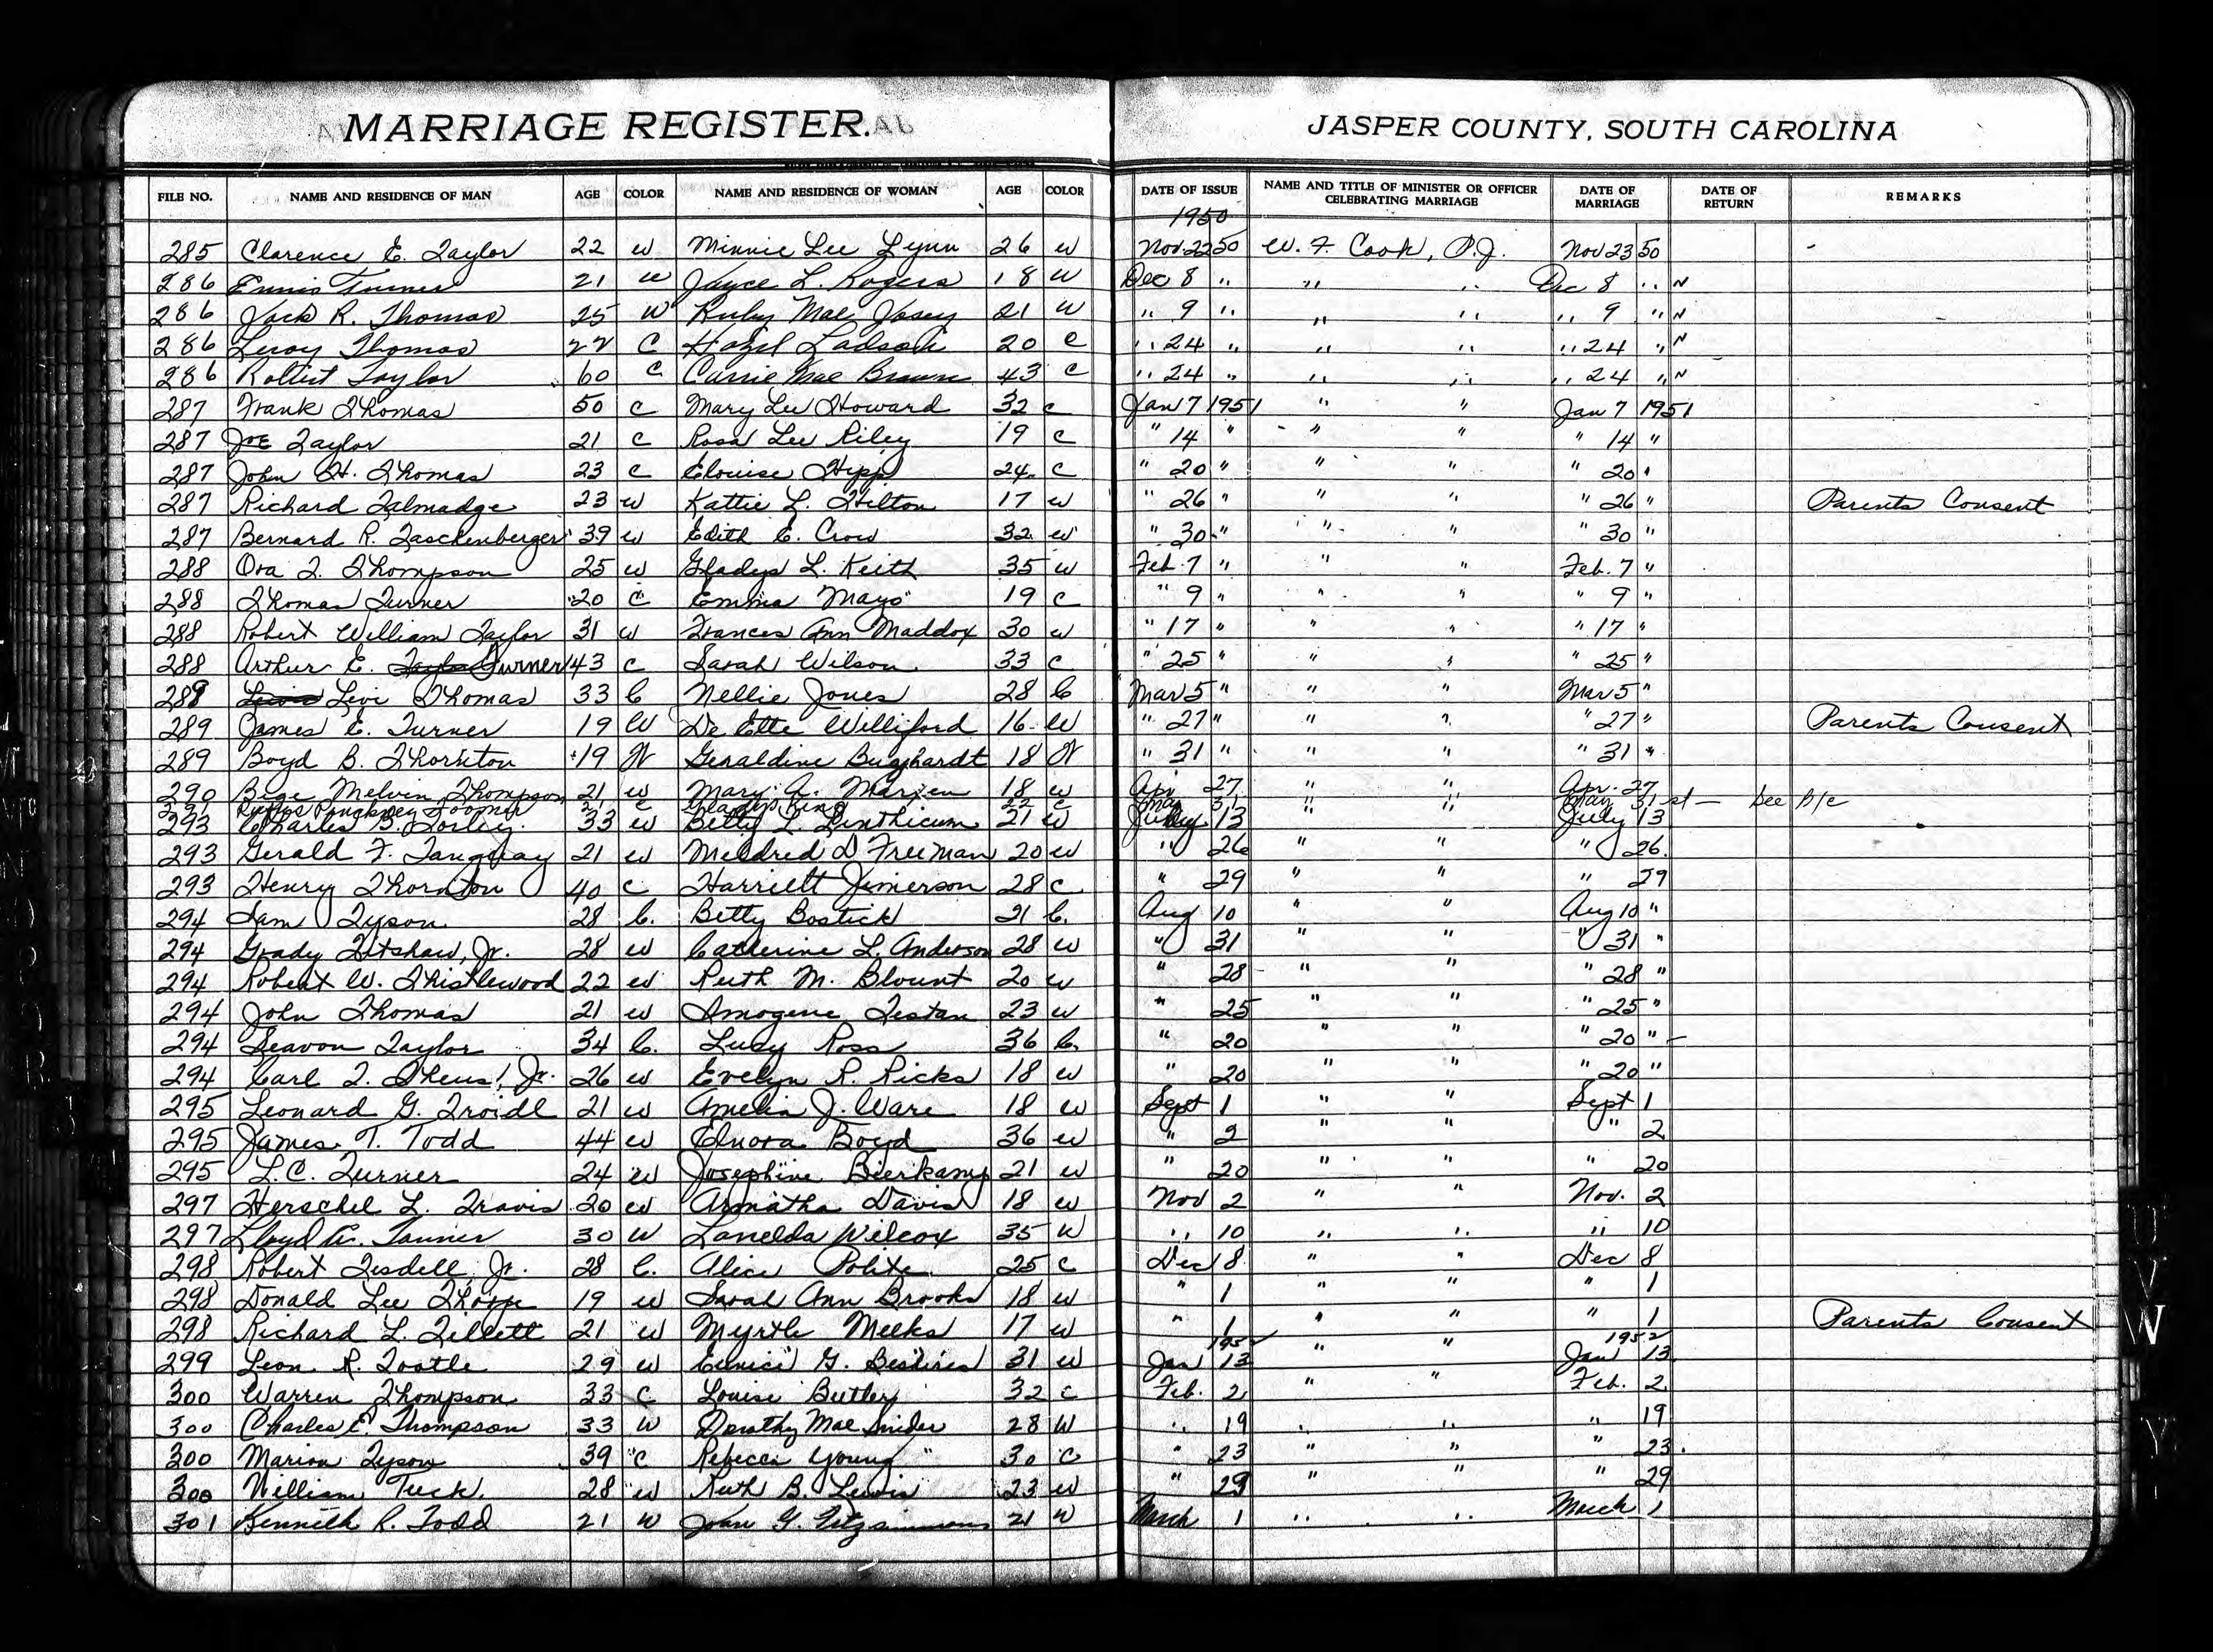 MARRIAGE REGISTER. JASPER COUNTY, SOUTH CAROLINA
FILE NO. NAME AND RESIDENCE OF MAN AGE COLOR NAME AND RESIDENCE OF WOMAN AGE COLOR DATE OF ISSUE NAME AND TITLE OF MINISTER OR OFFICER CELEBRATING MARRIAGE DATE OF MARRIAGE DATE OF RETURN REMARKS
1950
285 Clarence E. Taylor 22 W Minnie Lee Lynn 26 W Nov 22 50 W. F. Cook, P.J. Nov 23 50
286 Ennis Turner 21 W Joyce L. Rogers 18 W Dec 8 " " " Dec 8 "
286 Jack R. Thomas 25 W Ruby Mae Josey 21 W " 9 " " " " 9 "
286 Leroy Thomas 22 C Hazel Ladson 20 C " 24 " " " " 24 "
286 Robert Taylor 60 C Carrie Mae Brown 43 C " 24 " " " " 24 "
287 Frank Thomas 50 C Mary Lee Howard 32 C Jan 7 1951 " " Jan 7 1951
287 Joe Taylor 21 C Rosa Lee Riley 19 C " 14 " " " " 14 "
287 John H. Thomas 23 C Elouise Hipp 24 C " 20 " " " " 20 "
287 Richard Talmadge 23 W Kattie L. Hilton 17 W " 26 " " " " 26 " Parents Consent
287 Bernard R. Taschenberger 39 W Edith E. Crow 32 W " 30 " " " " 30 "
288 Ora T. Thompson 25 W Gladys L. Keith 35 W Feb. 7 " " " Feb. 7 "
288 Thomas Turner 20 C Emma Mayo 19 C " 9 " " " " 9 "
288 Robert William Taylor 31 W Frances Ann Maddox 30 W " 17 " " " " 17 "
288 Arthur E. Taylor Turner 43 C Sarah Wilson 33 C " 25 " " " " 25 "
289 Lewis Levi Thomas 33 C Nellie Jones 28 C Mar 5 " " " Mar 5 "
289 James E. Turner 19 W De Ette Williford 16 W " 27 " " " " 27 " Parents Consent
289 Boyd B. Thornton 19 W Geraldine Burghardt 18 W " 31 " " " " 31 "
290 Bige Melvin Thompson 21 W Mary A. 18 W Apr 27 " " Apr. 27
291 Rufus Pinckney Toomer 21 C Gladys King 22 C May 31 " " May 31 st - See B/c
293 Charles B. Torley 33 W Betty L. Linthicum 21 W July 13 July 13
293 Gerald F. Tanguay 21 W Mildred D Freeman 20 W " 26 " " " 26
293 Henry Thornton 40 C Harriett Jimerson 28 C " 29 " " " 29
294 Sam Tyson 28 C. Betty Bostick 21 C. Aug 10 " " Aug 10 "
294 Grady Titshaw, Jr. 28 W Catherine L. Anderson 28 W " 31 " " " 31 "
294 Robert W. Thistlewood 22 W Ruth M. Blount 20 W " 28 " " " 28 "
294 John Thomas 21 W Imogene Testan 23 W " 25 " " " 25 "
294 Seavon Taylor 34 C. Lucy Ross 36 C. " 20 " " " 20 "
294 Carl T. Theus, Jr. 26 W Evelyn R. Ricks 18 W " 20 " " " 20 "
295 Leonard G. Troidl 21 W Amelia J. Ware 18 W Sept 1 " " Sept 1
295 James T. Todd 44 W Elnora Boyd 36 W " 2 " " " 2
295 L.C. Turner 24 W Josephine Bierkamp 21 W " 20 " " " 20
297 Herschel L. Travis 20 W Armatha Davis 18 W Nov 2 " " Nov. 2
297 Lloyd A. Tanner 30 W Lanelda Wilcox 35 W " 10 " " " 10
298 Robert Tisdell, Jr. 28 C. Alice Polite 25 C Dec 8 " " Dec 8
298 Donald Lee Thorpe 19 W Sarah Ann Brooks 18 W " 1 " " " 1
298 Richard L. Tillett 21 W Myrtle Meeks 17 W " 1 " " " 1 Parents Consent
1952 1952
299 Leon R. Tootle 29 W Eunice G. 31 W Jan 13 " " Jan 13
300 Warren Thompson 33 C Louise Butler 32 C Feb. 2 " " Feb. 2
300 Charles E. Thompson 33 W Dorothy Mae Snider 28 W " 19 " " " 19
300 Marion Tyson 39 C Rebecca Young 30 C " 23 " " " 23
300 William Tuck 28 W Ruth B. Lewis 23 W " 29 " " " 29
301 Kenneth R. Todd 21 W Joan G. Fitzsimmons 21 W March 1 " " March 1